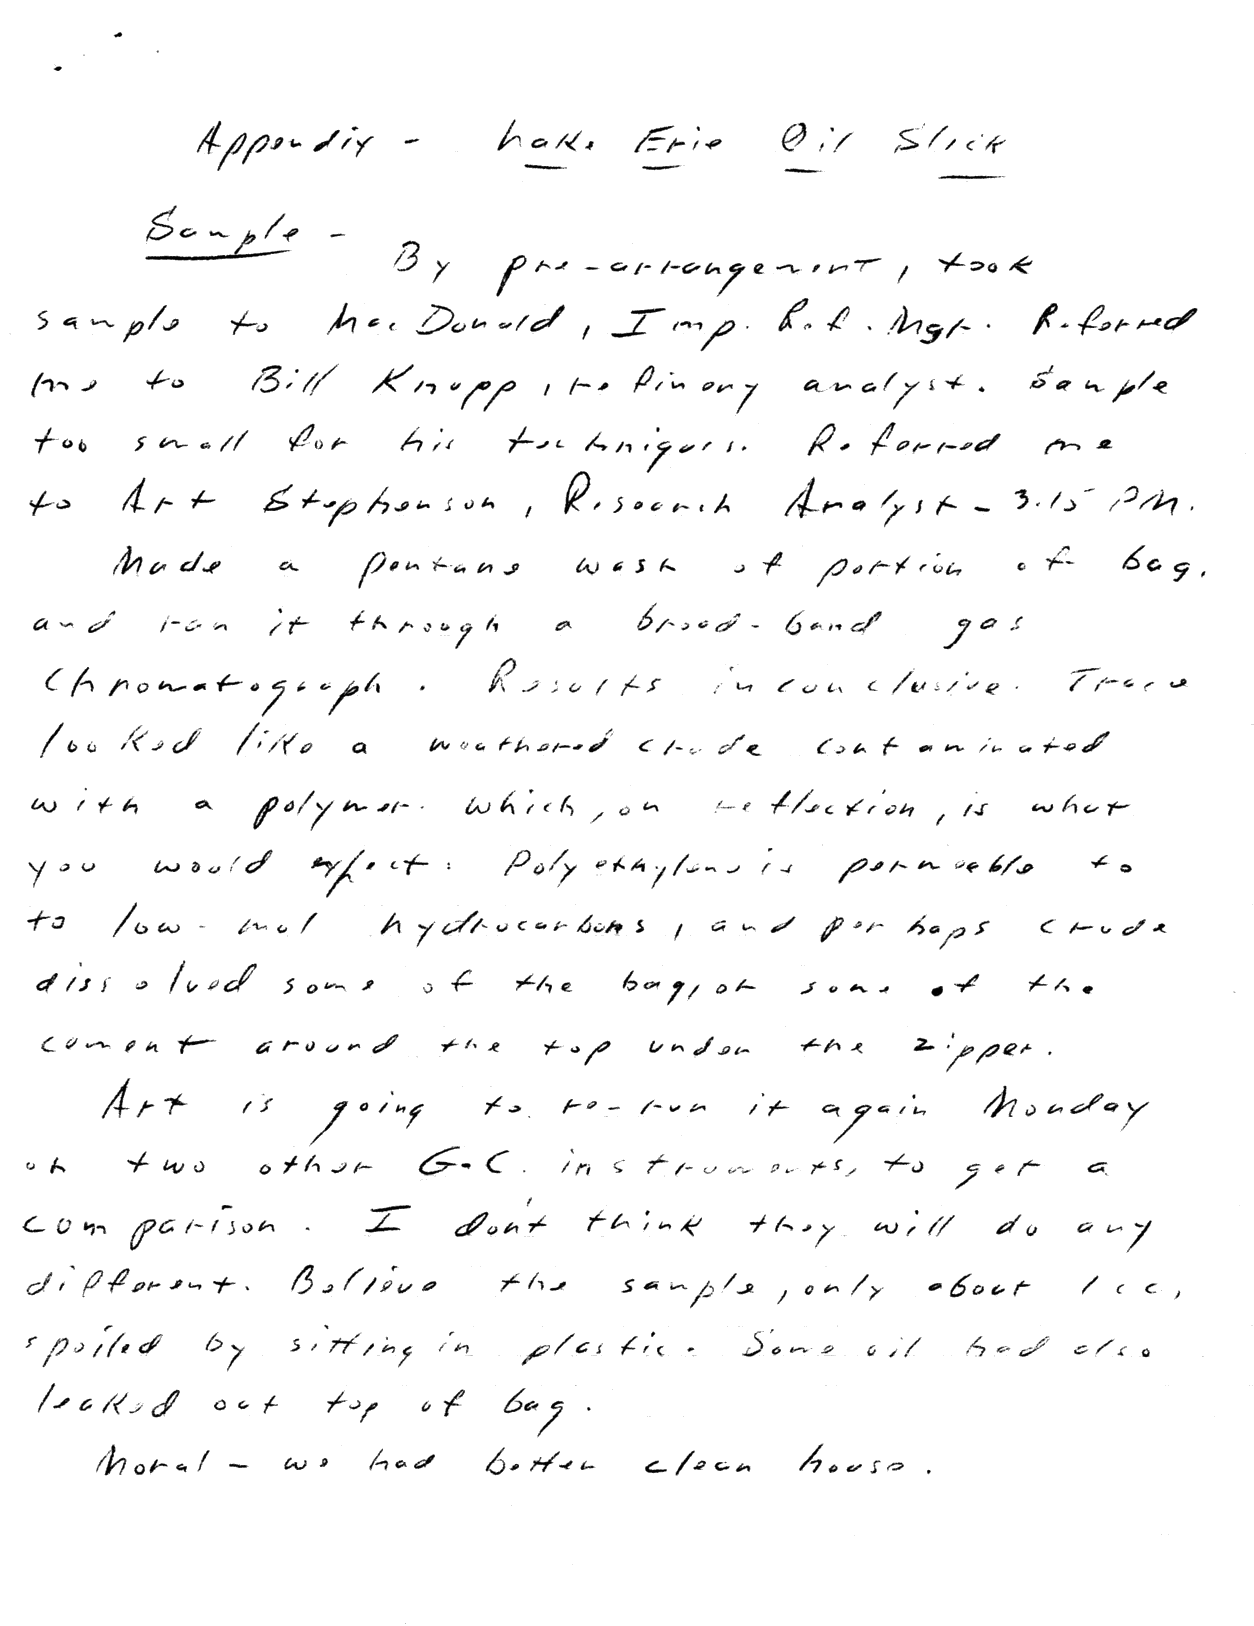 Appendix - Lake Erie Oil Slick
Sample -
By pre-arrangement, took
sample to MacDonald, Imp. Ref. Mgr. Referred
me to Bill Knupp, refinery analyst. Sample
too small for his techniques. Referred me
to Art Stephenson, Research Analyst - 3.15 PM.
Made a pentane wash of portion of bag.
and ran it through a broad-band gas
chromatograph. Results inconclusive. Trace
looked like a weathered crude contaminated
with a polymer. Which, on reflection, is what
you would expect: Polyethylene is permeable to
to low-mol hydrocarbons, and perhaps crude
dissolved some of the bag, or some of the
cement around the top under the zipper.
Art is going to re-run it again Monday
on two other G.C. instruments, to get a
comparison. I don't think they will do any
different. Believe the sample, only about 1cc,
spoiled by sitting in plastic. Some oil had also
leaked out top of bag.
Moral - we had better clean house.